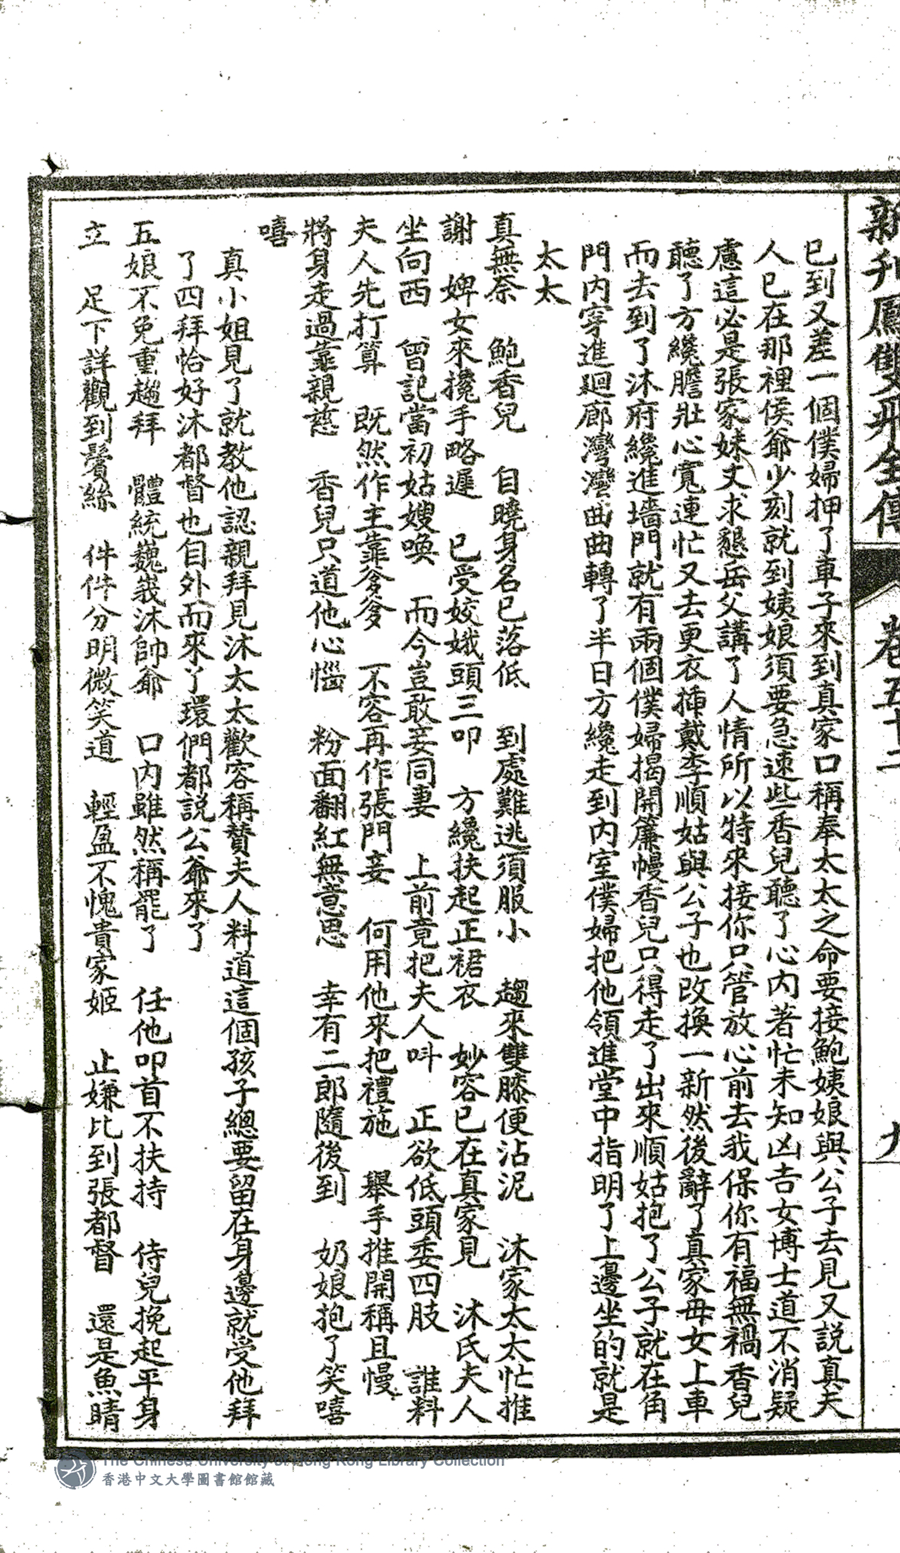 新刊鳳雙飛全傳 卷五十二 九
已到又差一個僕婦押了車子來到真家口稱奉太太之命要接鮑姨娘與公子去見又說真夫
人已在那裡侯爺少刻就到姨娘須要急速些香兒聽了心內著忙未知凶吉女博士道不消疑
慮這必是張家妹丈求懇岳父講了人情所以特來接你只管放心前去我保你有福無禍香兒
聽了方纔膽壯心寬連忙又去更衣揷戴李順姑與公子也改換一新然後辭了真家母女上車
而去到了沐府纔進墻門就有兩個僕婦揭開簾幔香兒只得走了出來順姑抱了公子就在角
門內穿進廻廊灣灣曲曲轉了半日方纔走到內室僕婦把他領進堂中指明了上邊坐的就是
太太
真無奈 鮑香兒 自曉身名已落低 到處難逃須服小 趨來雙膝便沾泥 沐家太太忙推
謝 婢女來攙手略遲 已受姣娥頭三叩 方纔扶起正裙衣 妙容已在真家見 沐氏夫人
坐向西 曾記當初姑嫂喚 而今豈敢妾同妻 上前竟把夫人呌 正欲低頭委四肢 誰料
夫人先打算 既然作主靠爹爹 不容再作張門妾 何用他來把禮施 舉手推開稱且慢
將身走過靠親慈 香兒只道他心惱 粉面翻紅無意思 幸有二郎隨後到 奶娘抱了笑嘻
嘻
真小姐見了就教他認親拜見沐太太歡容稱贊夫人料道這個孩子總要留在身邊就受他拜
了四拜恰好沐都督也自外而來了環們都說公爺來了
五娘不免重趨拜 體統巍峩沐帥爺 口內雖然稱罷了 任他叩首不扶持 侍兒挽起平身
立 足下詳觀到鬢絲 件件分明微笑道 輕盈不愧貴家姬 止嫌比到張都督 還是魚睛
The Chinese University of Hong Kong Library Collection
香港中文大學圖書館館藏